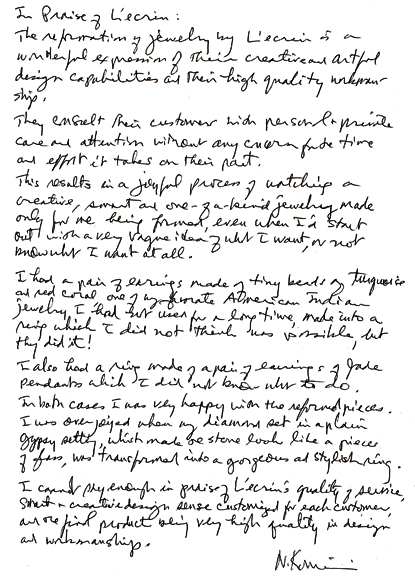 In Praise of L'ecrin:
The reformation of jewelry by L'ecrin is a
wonderful expression of their creative and artful
design capabilities and their high quality workman-
ship.
They consult their customer with personal + private
care and attention without any concern for the time
and effort it takes on their part.
This results in a joyful process of watching a
creative, smart and one-of-a-kind jewelry, made
only for me being formed, even when I'd start
out with a very vague idea of what I want, or not
know what I want at all.
I had a pair of earrings made of tiny beads of turquoise
and red coral, one of my favorite American Indian
jewelry, I had not used for a long time, made into a
ring which I did not think was possible, but
they did it!
I also had a ring made of a pair of earrings of Jade
pendants which I did not know what to do.
In both cases I was very happy with the reformed pieces.
I was overjoyed when my diamond set in a plain
gypsy setting, which made the stone look like a piece
of glass, was transformed into a gorgeous and stylish ring.
I cannot say enough in praise of L'ecrin's quality of service,
smart + creative design sense customized for each customer,
and one final product being very high quality in design
and workmanships.